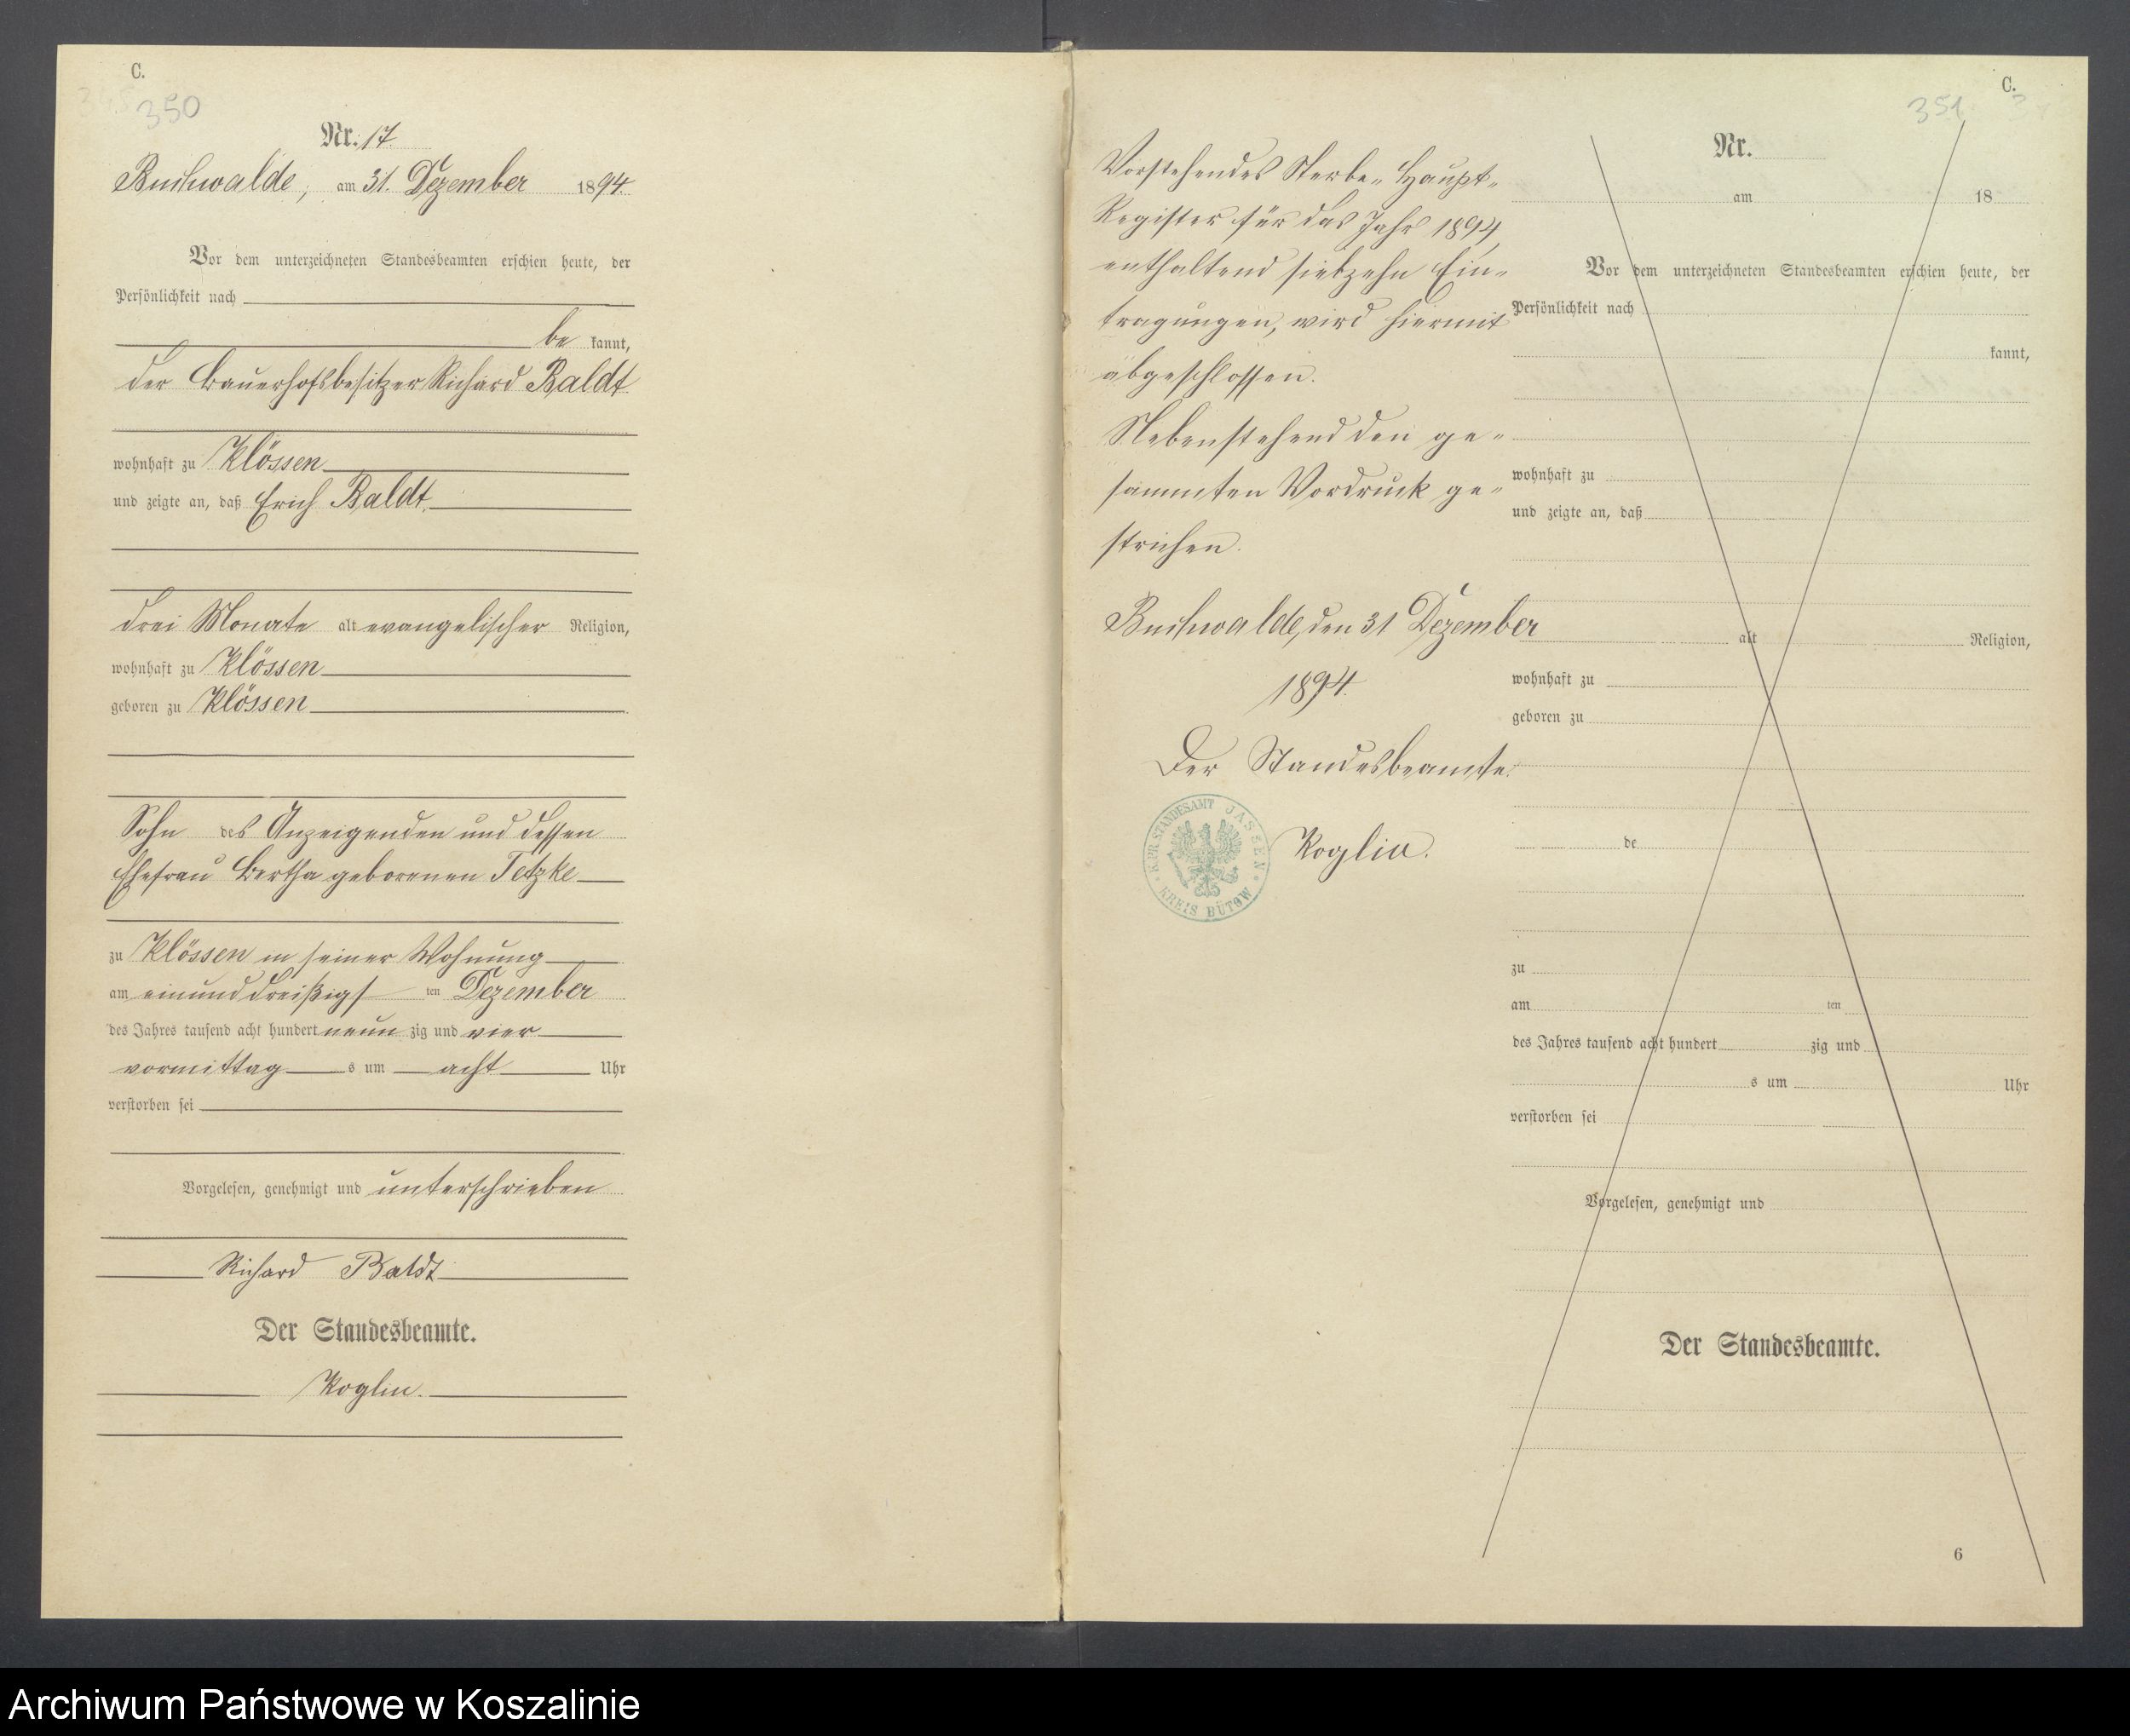 C.
350
Nr. 17.
Buchwalde, am 31. Dezember 1894.
Vor dem unterzeichneten Standesbeamten erschien heute, der
Persönlichkeit nach
be kannt,
der Bauerhofsbesitzer Richard Baldt
wohnhaft zu Klössen
und zeigte an, daß Erich Baldt,
drei Monate alt evangelischer Religion,
wohnhaft zu Klössen
geboren zu Klössen
Sohn des Anzeigenden und dessen
Ehefrau Bertha geborenen Tetzke
zu Klössen in seiner Wohnung
am einunddreißigst ten Dezember
des Jahres tausend acht hundert neun zig und vier
vormittag s um acht Uhr
verstorben sei
Vorgelesen, genehmigt und unterschrieben
Richard Baldt
Der Standesbeamte.
Roglin.
Vorstehendes Sterbe-Haupt-
Register für das Jahr 1894,
enthaltend siebzehn Ein-
tragungen, wird hiermit
abgeschlossen.
Nebenstehend den ge-
sammten Vordruck ge-
strichen.
Buchwalde, den 31 Dezember
1894.
Der Standesbeamte.
Roglin.
K. PR. STANDESAMT JASSEN
KREIS BÜTOW
C.
351
Nr.
am 18
Vor dem unterzeichneten Standesbeamten erschien heute, der
Persönlichkeit nach
kannt,
wohnhaft zu
und zeigte an, daß
alt Religion,
wohnhaft zu
geboren zu
de
zu
am ten
des Jahres tausend acht hundert zig und
s um Uhr
verstorben sei
Vorgelesen, genehmigt und
Der Standesbeamte.
6
Archiwum Państwowe w Koszalinie